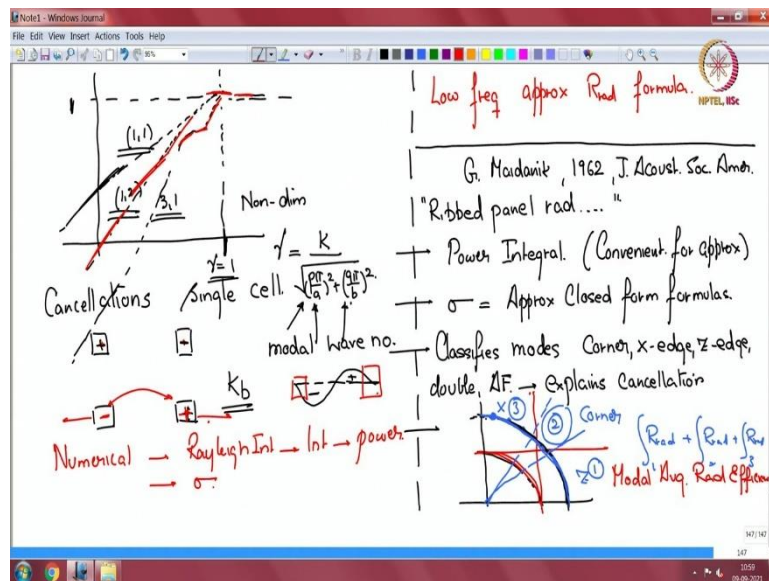 Note1 - Windows Journal
File Edit View Insert Actions Tools Help
96%
NPTEL, IISc
1
(1,1)
(1,2)
3,1
Non-dim
γ=1
γ = K / √((pπ/a)² + (qπ/b)²)
Cancellations Single cell.
+ -
modal wave no.
- + K_b
- +
Numerical → Rayleigh Int → Int → power.
→ σ.
Low freq approx Rrad formula.
G. Maidanik, 1962, J. Acoust. Soc. Amer.
"Ribbed panel rad...."
Power Integral. (Convenient for approx)
σ = Approx Closed form formulas.
Classifies modes Corner, x-edge, z-edge,
double, AF. → explains Cancellation
X ③ ② Corner
Z ①
∫Rrad + ∫Rrad + ∫Rrad
1 2 3
Modal Avg. Rad Efficien
147|147
147
10:59
09-09-2021